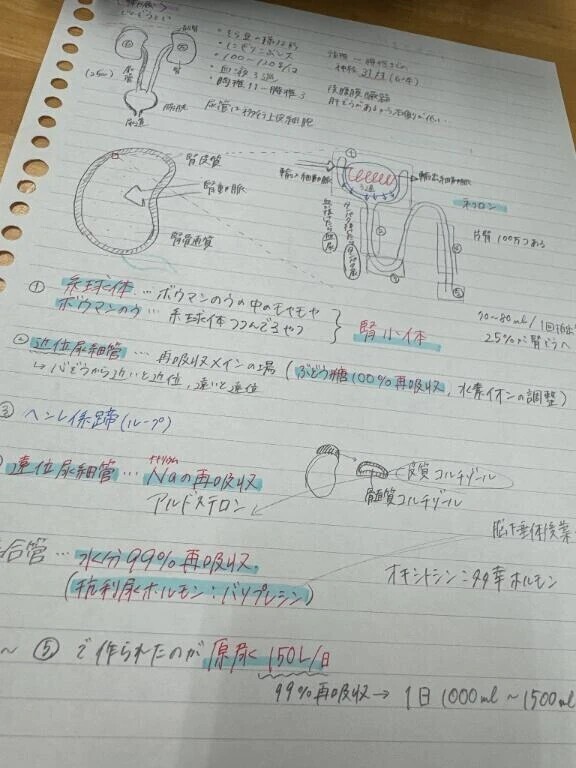 腎臓
尿管
(25cm)
膀胱
尿道
・にぎりこぶし大
・100〜120g/コ
・胸椎11〜腰椎3
尿管は移行上皮細胞
後腹膜臓器
肝ぞうがあるから右腎が低い
腎皮質
腎動脈
腎髄質
①
輸入細動脈
輸出細動脈
ネフロン
②
③
④
⑤
片腎100万コある
① 糸球体…ボウマンのうの中のモヤモヤ
ボウマンのう…糸球体つつんでるやつ
腎小体
70〜80ml/1回拍出
25%が腎ぞうへ
② 近位尿細管…再吸収メインの場(ぶどう糖100%再吸収、水素イオンの調整)
↳心ぞうから近いと近位、遠いと遠位
③ ヘンレ係蹄(ループ)
遠位尿細管…Naの再吸収
ナトリウム
アルドステロン
皮質コルチゾール
髄質コルチゾール
脳下垂体後葉
合管…水分99%再吸収
(抗利尿ホルモン:バソプレシン)
オキシトシン:幸ホルモン
〜⑤で作られたのが原尿150L/日
99%再吸収→1日1000ml〜1500ml